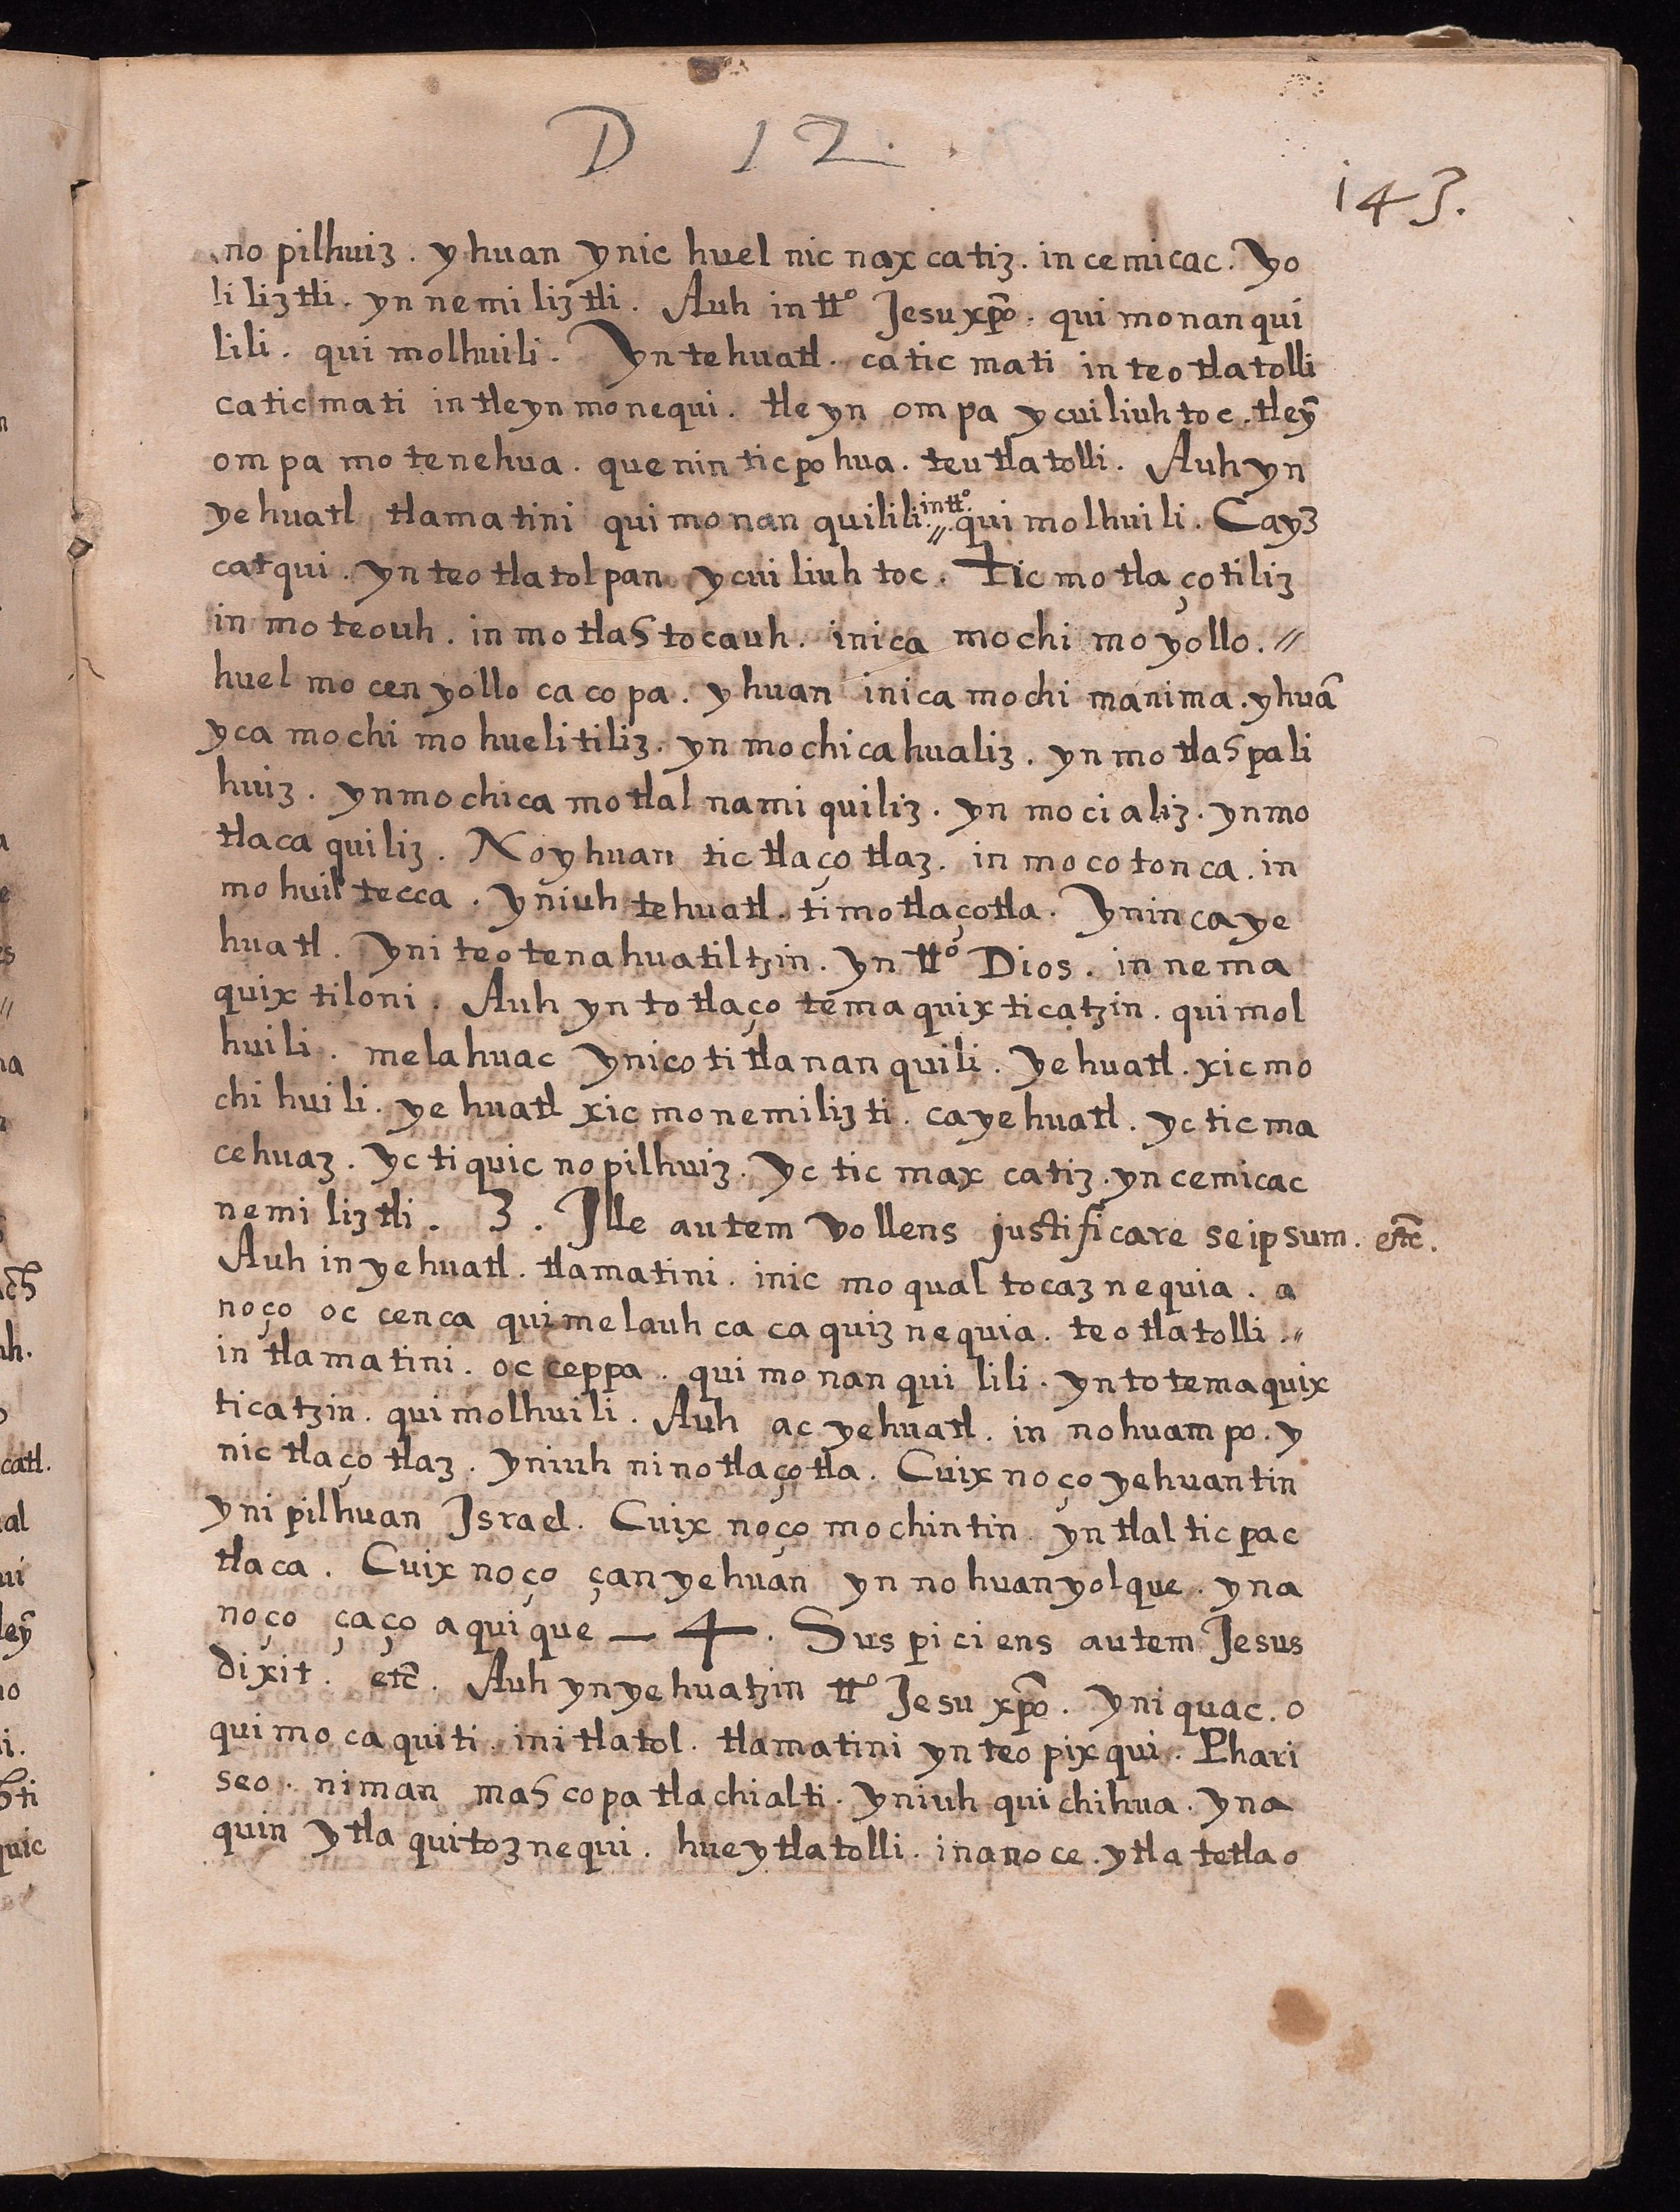 D 12.
143.
no pilhuiz. y huan ynic huel nic nax catiz. in cemicac. Yo
li liztli. yn nemi liztli. Auh in tt.º Jesu xp̃o. qui monan qui
lili. qui molhuili. Yn tehuatl. ca tic mati in teo tlatolli
ca tic mati in tleyn monequi. tle yn om pa ycuiliuh toc. tleỹ
om pa mo tenehua. quenin tic po hua. teu tlatolli. Auh yn
ye huatl tlamatini qui mo nan quilili. in tt.º qui molhuili. Cayz
catqui. yn teo tlatol pan ycui liuh toc. Tic mo tlaçotiliz
in mo teouh. in mo tlaStocauh. inica mochi mo yollo. //
huel mo cen yollo ca co pa. y huan inica mochi manima. yhuã
yca mochi mo huelitiliz. yn mochicahualiz. yn mo tlaSpali
huiz. yn mo chica motlal nami quiliz. yn mo cializ. yn mo
tlaca quiliz. No yhuan tic tlaço tlaz. in mo co ton ca. in
mo huil tecca. yniuh tehuatl. timo tlaçotla. Ynin ca ye
huatl. yni teo tenahuatiltzin. yn tt.º Dios. in nema
quix tiloni. Auh yn to tlaço temaquixticatzin. qui mol
huili. melahuac ynic o ti tla nan quili. ye huatl. xic mo
chi huili. ye huatl xic mo nemilizti. ca ye huatl. yc tic ma
cehuaz. yc ti quic no pilhuiz. yc tic max catiz. yn cemicac
nemi liztli. 3. Ille autem vollens justificare seipsum. etc̃.
Auh in yehuatl. tlamatini. inic mo qual tocaz nequia. a
noço oc cenca quimelauh ca ca quiz nequia. teo tlatolli. //
in tlamatini. oc ceppa. qui mo nan qui lili. yn totemaquix
ticatzin. quimolhuili. Auh ac yehuatl. in nohuam po. y
nic tlaço tlaz. yniuh nino tlaçotla. Cuix noço yehuantin
yni pilhuan Israel. Cuix noço mochintin. yn tlal tic pac
tlaca. Cuix noço çan yehuan yn nohuanyolque. yn a
noço çaço aquique — 4. Suspiciens autem Jesus
dixit. etc̃. Auh yn yehuatzin tt.º Jesu xp̃o. yni quac. o
quimo caquiti. ini tlatol. tlamatini yn teo pix qui. Phari
seo. niman maScopa tlachialti. yniuh quichihua. yn a
quin ytla quitoz nequi. huey tlatolli. in ano ce. ytla tetla o